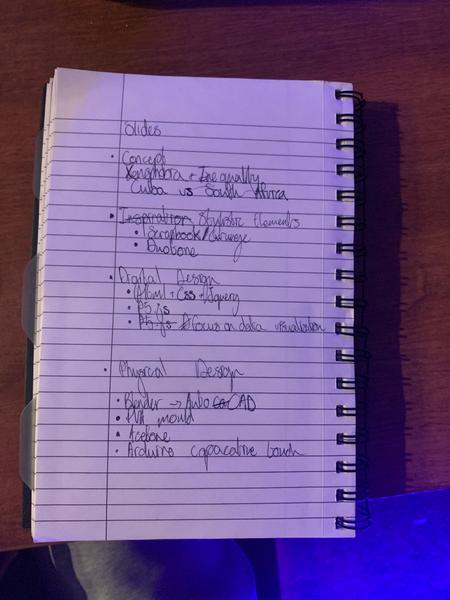 Slides
• Concept
Xenophobia + Inequality
Cuba vs South Africa
• Inspiration Stylistic Elements
• Scrapbook/Grunge
• Duotone
• Digital Design
• Html + Css + Jquery
• P5.js
• P5.js focus on data visualization
• Physical Design
• Blender → Auto CAD
• mould
• Acetone
• Arduino capacative touch